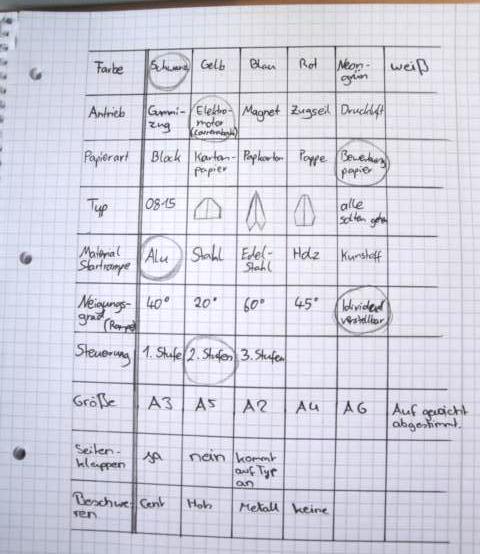 Farbe Schwarz Gelb Blau Rot Neon-grün weiß
Antrieb Gummi-zug Elektro-motor (Carrerabahn) Magnet Zugseil Druckluft
Papierart Block Karton-papier Papkarton Pappe Bewerbungs papier
Typ 08-15 alle sollten gehen
Material Startrampe Alu Stahl Edel-Stahl Holz Kunstoff
Neigungs-grad (Rampe) 40° 20° 60° 45° Idividuell verstellbar
Steuerung 1. Stufe 2. Stufen 3. Stufen
Größe A3 A5 A2 A4 A6 Auf gewicht abgestimmt.
Seiten-klappen ja nein kommt auf Typ an
Beschwe-ren Cent Holz Metall keine